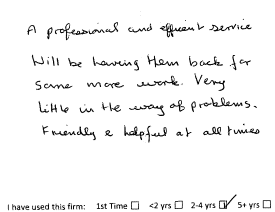 A professional and efficient service
Will be having them back for
some more work. Very
little in the way of problems.
Friendly & helpful at all times
I have used this firm: 1st Time ☐ <2 yrs ☐ 2-4 yrs ☑ 5+ yrs ☐